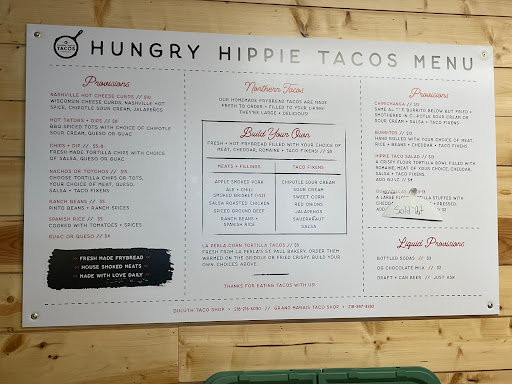 TACOS
HUNGRY HIPPIE TACOS MENU
Provisions
NASHVILLE HOT CHEESE CURDS // $10
WISCONSIN CHEESE CURDS, NASHVILLE HOT
SPICE, CHIPOTLE SOUR CREAM, JALAPEÑOS
HOT TATORS + DIPS // $8
BBQ SPICED TOTS WITH CHOICE OF CHIPOTLE
SOUR CREAM, QUESO OR GUAC
CHIPS + DIP //
FRESH MADE TORTILLA CHIPS WITH CHOICE
OF SALSA, QUESO OR GUAC
NACHOS OR TOTCHOS //
CHOOSE TORTILLA CHIPS OR TOTS,
YOUR CHOICE OF MEAT, QUESO,
SALSA + TACO FIXENS
RANCH BEANS // $3
PINTO BEANS + RANCH SPICES
SPANISH RICE // $3
COOKED WITH TOMATOES + SPICES
GUAC OR QUESO // $4
FRESH MADE FRYBREAD
HOUSE SMOKED MEATS
MADE WITH LOVE DAILY
Northern Tacos
OUR HOMEMADE FRYBREAD TACOS ARE MADE
FRESH TO ORDER + FILLED TO YOUR LIKING!
THEY'RE LARGE + DELICIOUS!
Build Your Own
FRESH + HOT FRYBREAD FILLED WITH YOUR CHOICE OF
MEAT, CHEDDAR, ROMAINE + TACO FIXENS //
MEATS + FILLINGS
APPLE SMOKED PORK
ALE + CHILI
SMOKED BRISKET
SALSA ROASTED CHICKEN
SPICED GROUND BEEF
RANCH BEANS +
SPANISH RICE
TACO FIXENS
CHIPOTLE SOUR CREAM
SOUR CREAM
SWEET CORN
RED ONIONS
JALAPENOS
SAUERKRAUT
SALSA
LA PERLA CORN TORTILLA TACOS // $5
FRESH FROM LA PERLA'S ST. PAUL BAKERY. ORDER THEM
WARMED ON THE GRIDDLE OR FRIED CRISPY. BUILD YOUR
OWN, CHOICES ABOVE.
THANKS FOR EATING TACOS WITH US!
Provisions
CHIMICHANGA // $13
SAME AS THE BURRITO BELOW BUT FRIED +
SMOTHERED IN CHIPOTLE SOUR CREAM OR
SOUR CREAM + SALSA + TACO FIXENS
BURRITOS //
HAND ROLLED WITH YOUR CHOICE OF MEAT,
RICE + BEANS + CHEDDAR + TACO FIXENS
HIPPIE TACO SALAD //
A CRISPY FLOUR TORTILLA BOWL FILLED WITH
ROMAINE, YOUR CHOICE OF MEAT, CHEDDAR,
SALSA + TACO FIXENS
ADD GUAC // $4
A LARGE TORTILLA STUFFED WITH
Sold Out
ADD
Liquid Provisions
BOTTLED SODAS // $3
OG CHOCOLATE MILK // $3
DRAFT + CAN BEER // JUST ASK
DULUTH TACO SHOP // 218-215-5030 // GRAND MARAIS TACO SHOP // 218-387-3382